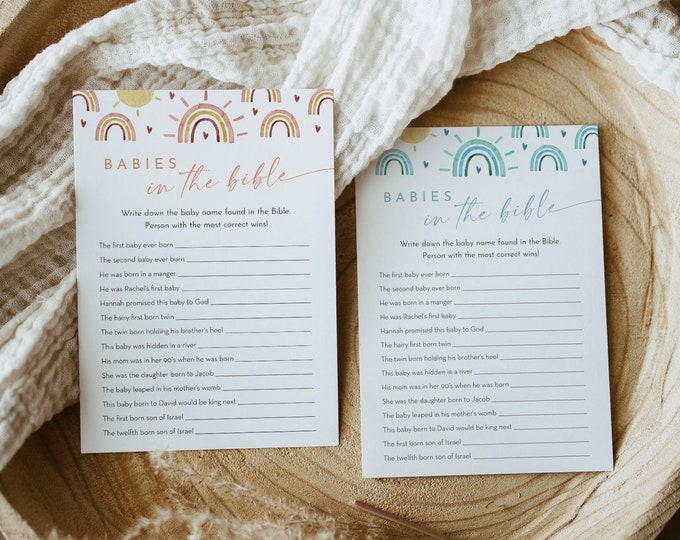 BABIES
in the bible
Write down the baby name found in the Bible.
Person with the most correct wins!
The first baby ever born
The second baby ever born
He was born in a manger
He was Rachel's first baby
Hannah promised this baby to God
The hairy first born twin
The twin born holding his brother's heel
This baby was hidden in a river
His mom was in her 90's when he was born
She was the daughter born to Jacob
The baby leaped in his mother's womb
This baby born to David would be king next
The first born son of Israel
The twelfth born son of Israel
BABIES
in the bible
Write down the baby name found in the Bible.
Person with the most correct wins!
The first baby ever born
The second baby ever born
He was born in a manger
He was Rachel's first baby
Hannah promised this baby to God
The hairy first born twin
The twin born holding his brother's heel
This baby was hidden in a river
His mom was in her 90's when he was born
She was the daughter born to Jacob
The baby leaped in his mother's womb
This baby born to David would be king next
The first born son of Israel
The twelfth born son of Israel